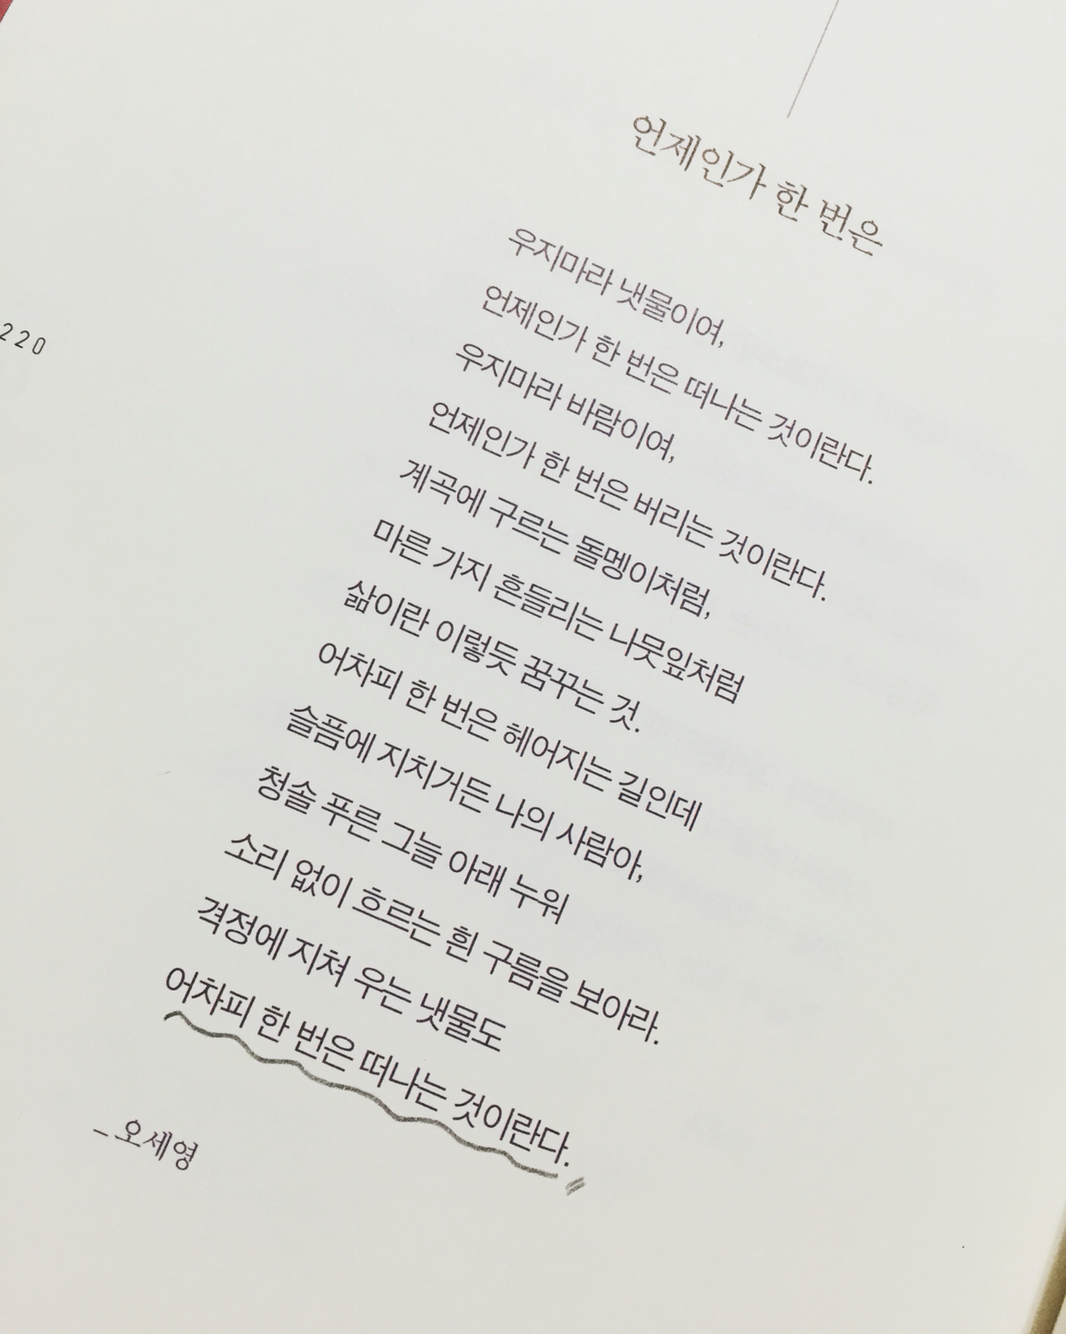 언제인가 한 번은
우지마라 냇물이여,
언제인가 한 번은 떠나는 것이란다.
우지마라 바람이여,
언제인가 한 번은 버리는 것이란다.
계곡에 구르는 돌멩이처럼,
마른 가지 흔들리는 나뭇잎처럼
삶이란 이렇듯 꿈꾸는 것.
어차피 한 번은 헤어지는 길인데
슬픔에 지치거든 나의 사람아,
청솔 푸른 그늘 아래 누워
소리 없이 흐르는 흰 구름을 보아라.
격정에 지쳐 우는 냇물도
어차피 한 번은 떠나는 것이란다.
_오세영
220